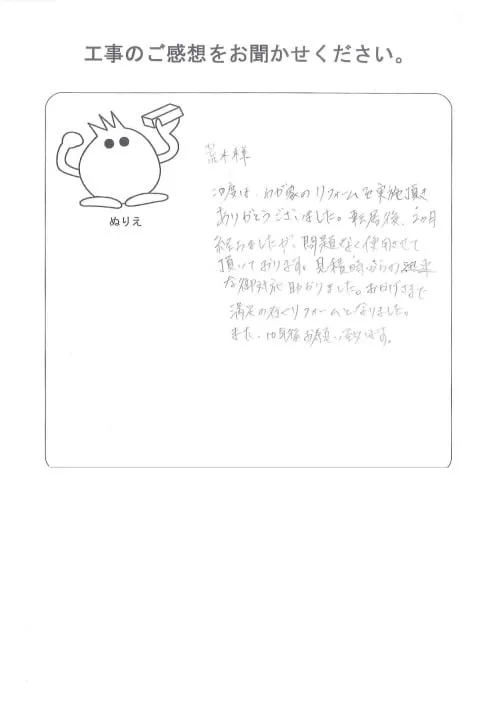 工事のご感想をお聞かせください。
ぬりえ
荒木様
この度は、わが家のリフォームを実施頂き
ありがとうございました。転居後、2ヶ月
経ちましたが、問題なく使用させて
頂いております。見積時からの
な御対応助かりました。おかげさまで
満足の行くリフォームとなりました。
また、10年後お願い致します。